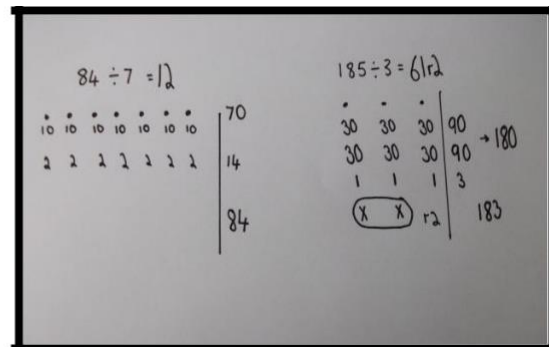 84 ÷ 7 = 12
10 10 10 10 10 10 10 70
2 2 2 2 2 2 2 14
84
185 ÷ 3 = 61r2
30 30 30 90
30 30 30 90 → 180
1 1 1 3
x x r2 183